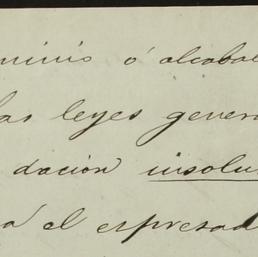 ó alcabal
las leyes genera
dación insolu
el espresad